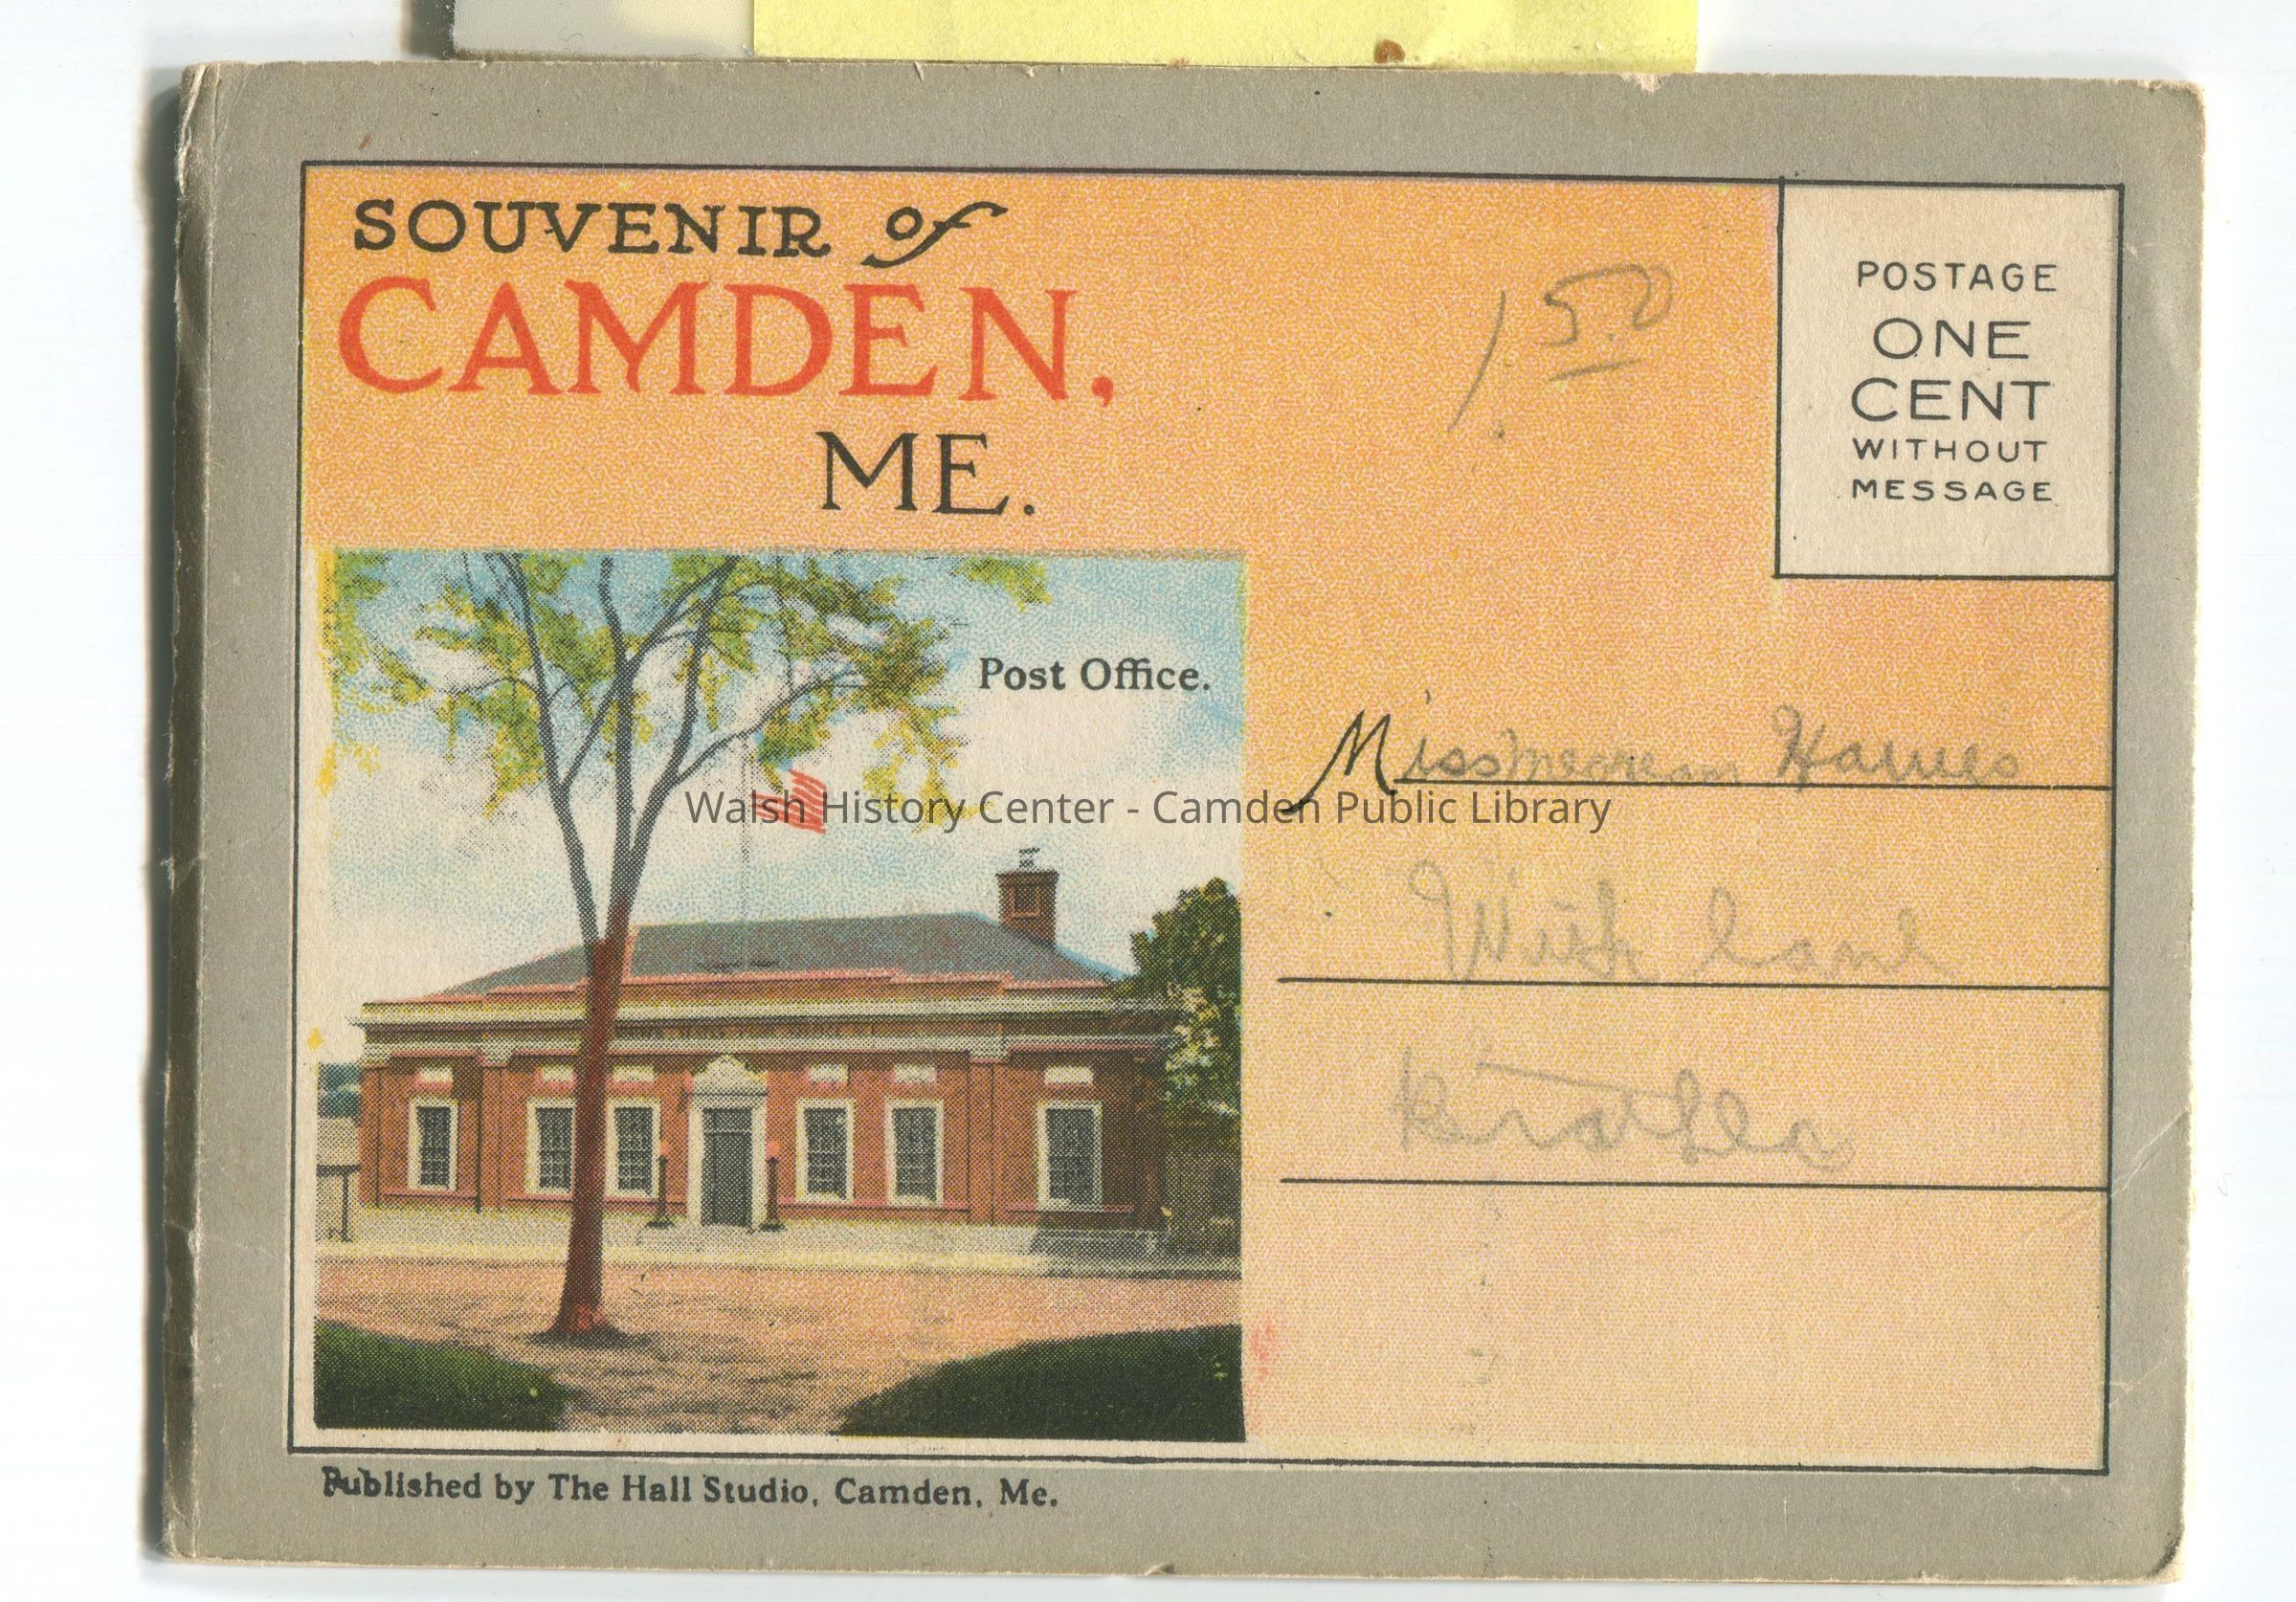 SOUVENIR of
CAMDEN,
ME.
1.50
POSTAGE
ONE
CENT
WITHOUT
MESSAGE
Post Office.
Miss
Walsh History Center - Camden Public Library
With
Published by The Hall Studio, Camden, Me.